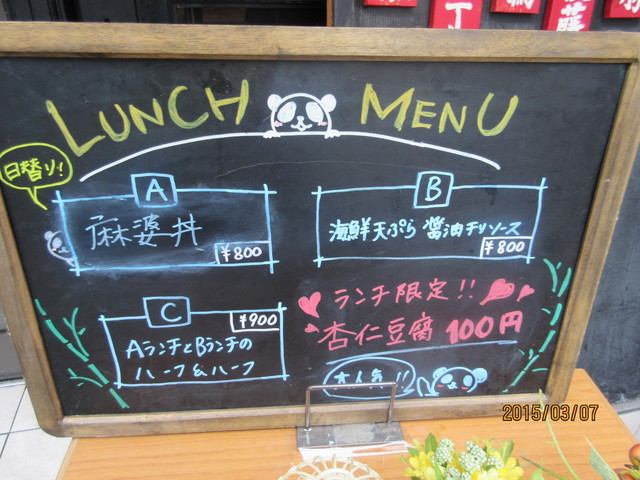 LUNCH MENU
日替り!
A
麻婆丼
¥800
B
海鮮天ぷら 醤油チリソース
¥800
C
¥900
AランチとBランチの
ハーフ&ハーフ
ランチ限定!!
杏仁豆腐 100円
大人気!!
2015/03/07